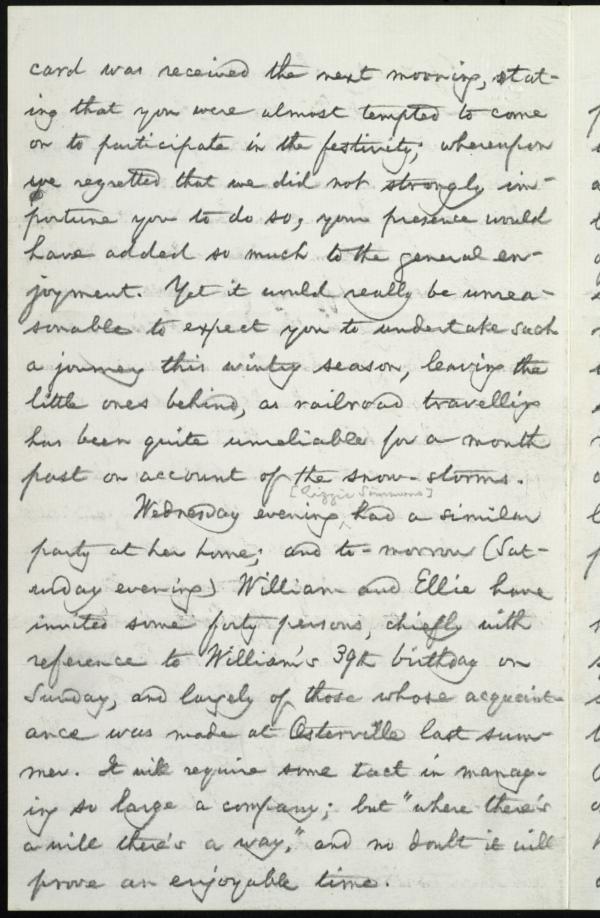 card was received the next morning, stat-
ing that you were almost tempted to come
on to participate in the festivity; whereupon
we regretted that we did not strongly im-
portune you to do so, your presence would
have added so much to the general en-
joyment. Yet it would really be unrea-
sonable to expect "you" to undertake such
a journey this wintry season, leaving the
little ones behind, as railroad travelling
has been quite unreliable for a month
past on account of the snow-storms.
[Lizzie Simmons]
Wednesday evening, had a similar
party at her home; and to-morrow (Sat-
urday evening) William and Ellie have
invited some forty persons, chiefly with
reference to William's 39th birthday on
Sunday, and largely of those whose acquaint-
ance was made at Osterville last sum-
mer. It will require some tact in manag-
ing so large a company; but "where there's
a will there's a way," and no doubt it will
prove an enjoyable time.